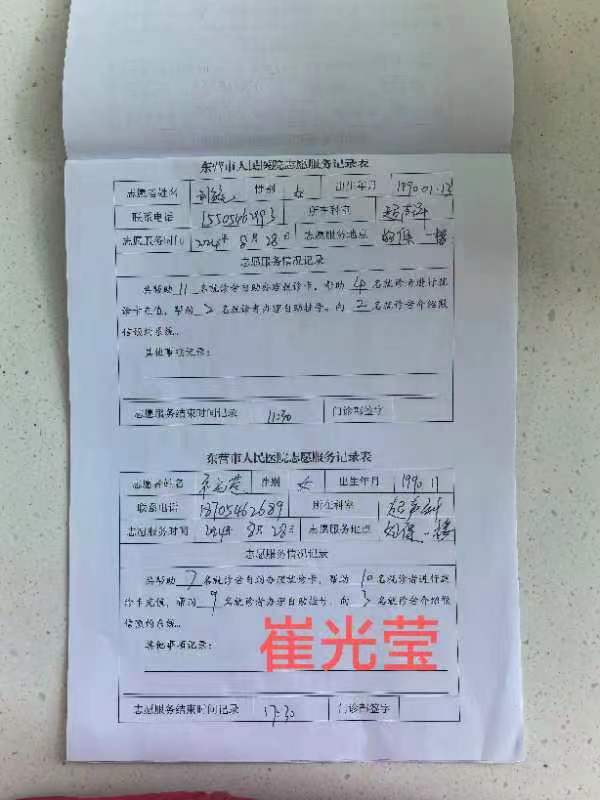 东营市人民医院志愿服务记录表
志愿者姓名 性别 女 出生年月 1990.01.13
联系电话 15505462993 所在科室 超声科
志愿服务时间 2024年8月28日 志愿服务地点 妇保一楼
志愿服务情况记录
共帮助 11 名就诊者自助办理就诊卡，帮助 4 名就诊者进行就
诊卡充值，帮助 名就诊者办理自助挂号，向 2 名就诊者介绍微
信预约系统。
其他事项记录：
志愿服务结束时间记录 11:30 门诊部签字
东营市人民医院志愿服务记录表
志愿者姓名 性别 女 出生年月 1990.11
联系电话 18705462689 所在科室 超声科
志愿服务时间 2024年8月28日 志愿服务地点 妇保一楼
志愿服务情况记录
共帮助 7 名就诊者自助办理就诊卡，帮助 10 名就诊者进行就
诊卡充值，帮助 9 名就诊者办理自助挂号，向 3 名就诊者介绍微
信预约系统。
其他事项记录：
崔光莹
志愿服务结束时间记录 17:30 门诊部签字